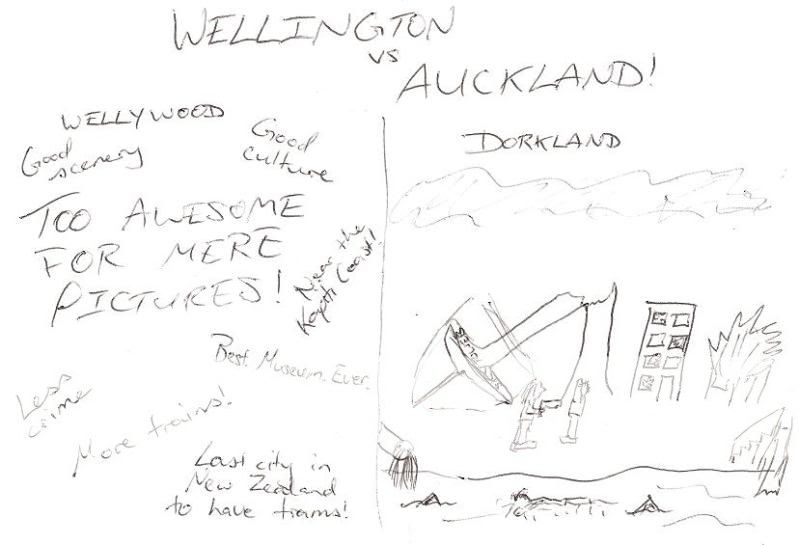 WELLINGTON
VS
AUCKLAND!
WELLYWOOD
Good
scenery
Good
culture
TOO AWESOME
FOR MERE
PICTURES!
Near the
Kapiti Coast!
Best. Museum. Ever.
Less
crime
More trains!
Last city in
New Zealand
to have trams!
DORKLAND